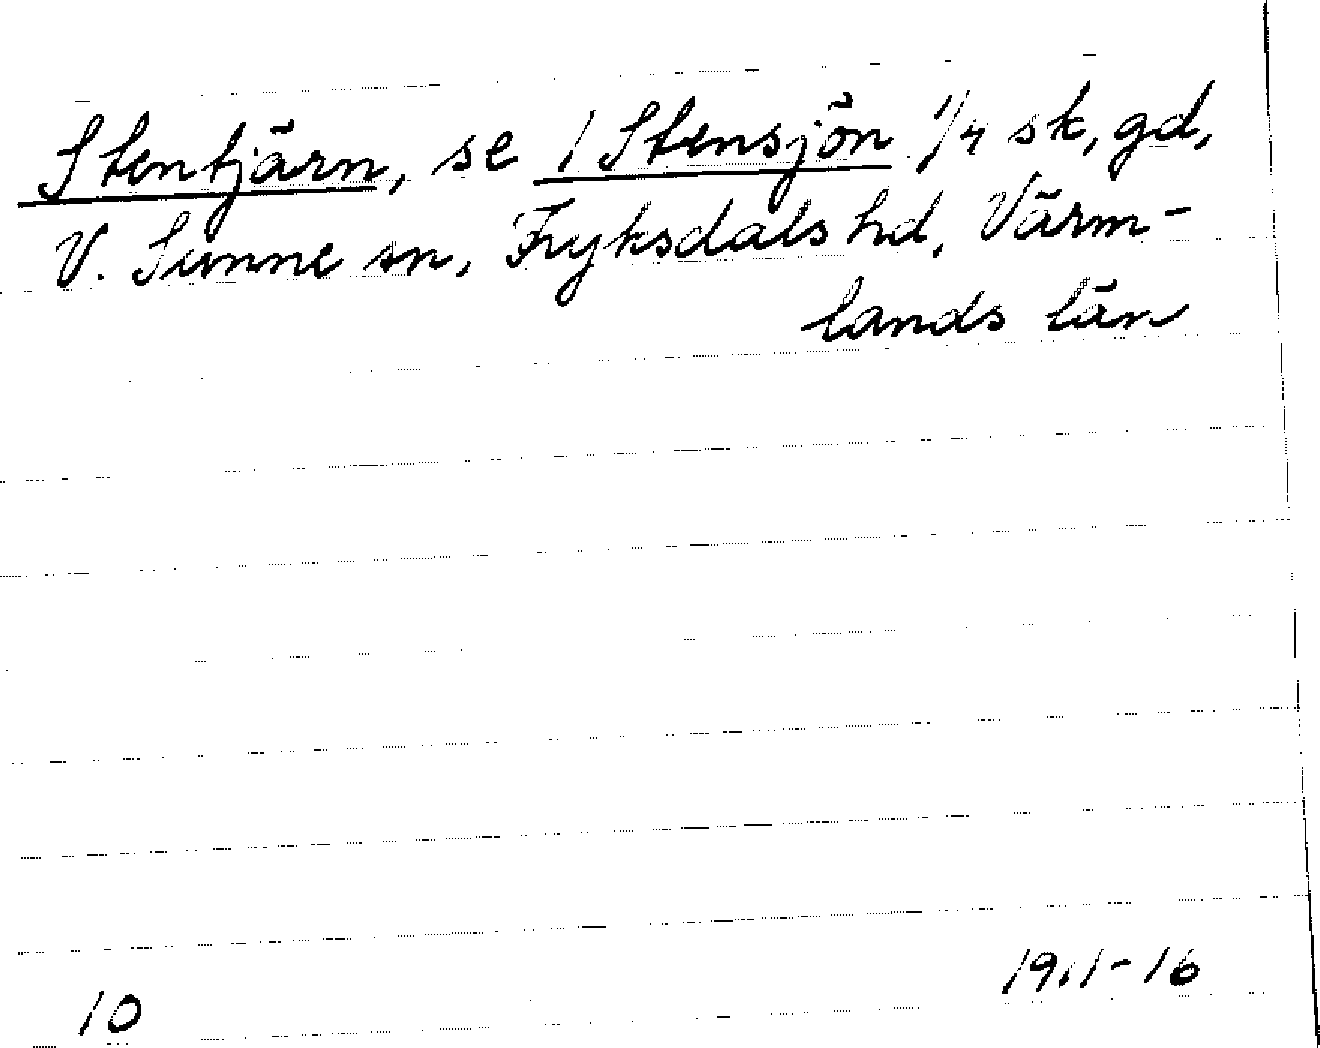 Stentjärn, se / Stensjön 1/4 sk, gd,
V. Sunne sn, Fryksdals hd, Värm-
lands län
1911-16
10